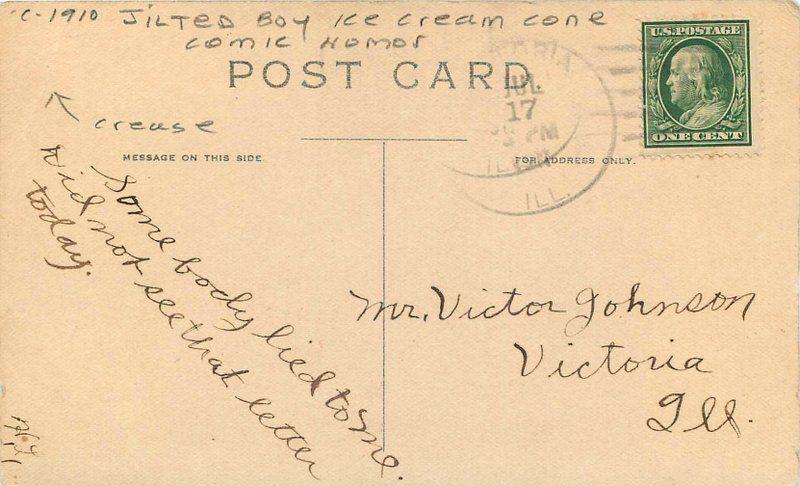 C-1910 JILTED BOY Ice cream cone
comic Homor
POST CARD.
U.S. POSTAGE
ONE CENT
JUL
17
PM
ILL.
crease
MESSAGE ON THIS SIDE.
FOR ADDRESS ONLY.
Somebody lied to me.
Did not see that letter
today.
Mr. Victor Johnson
Victoria
Ill.